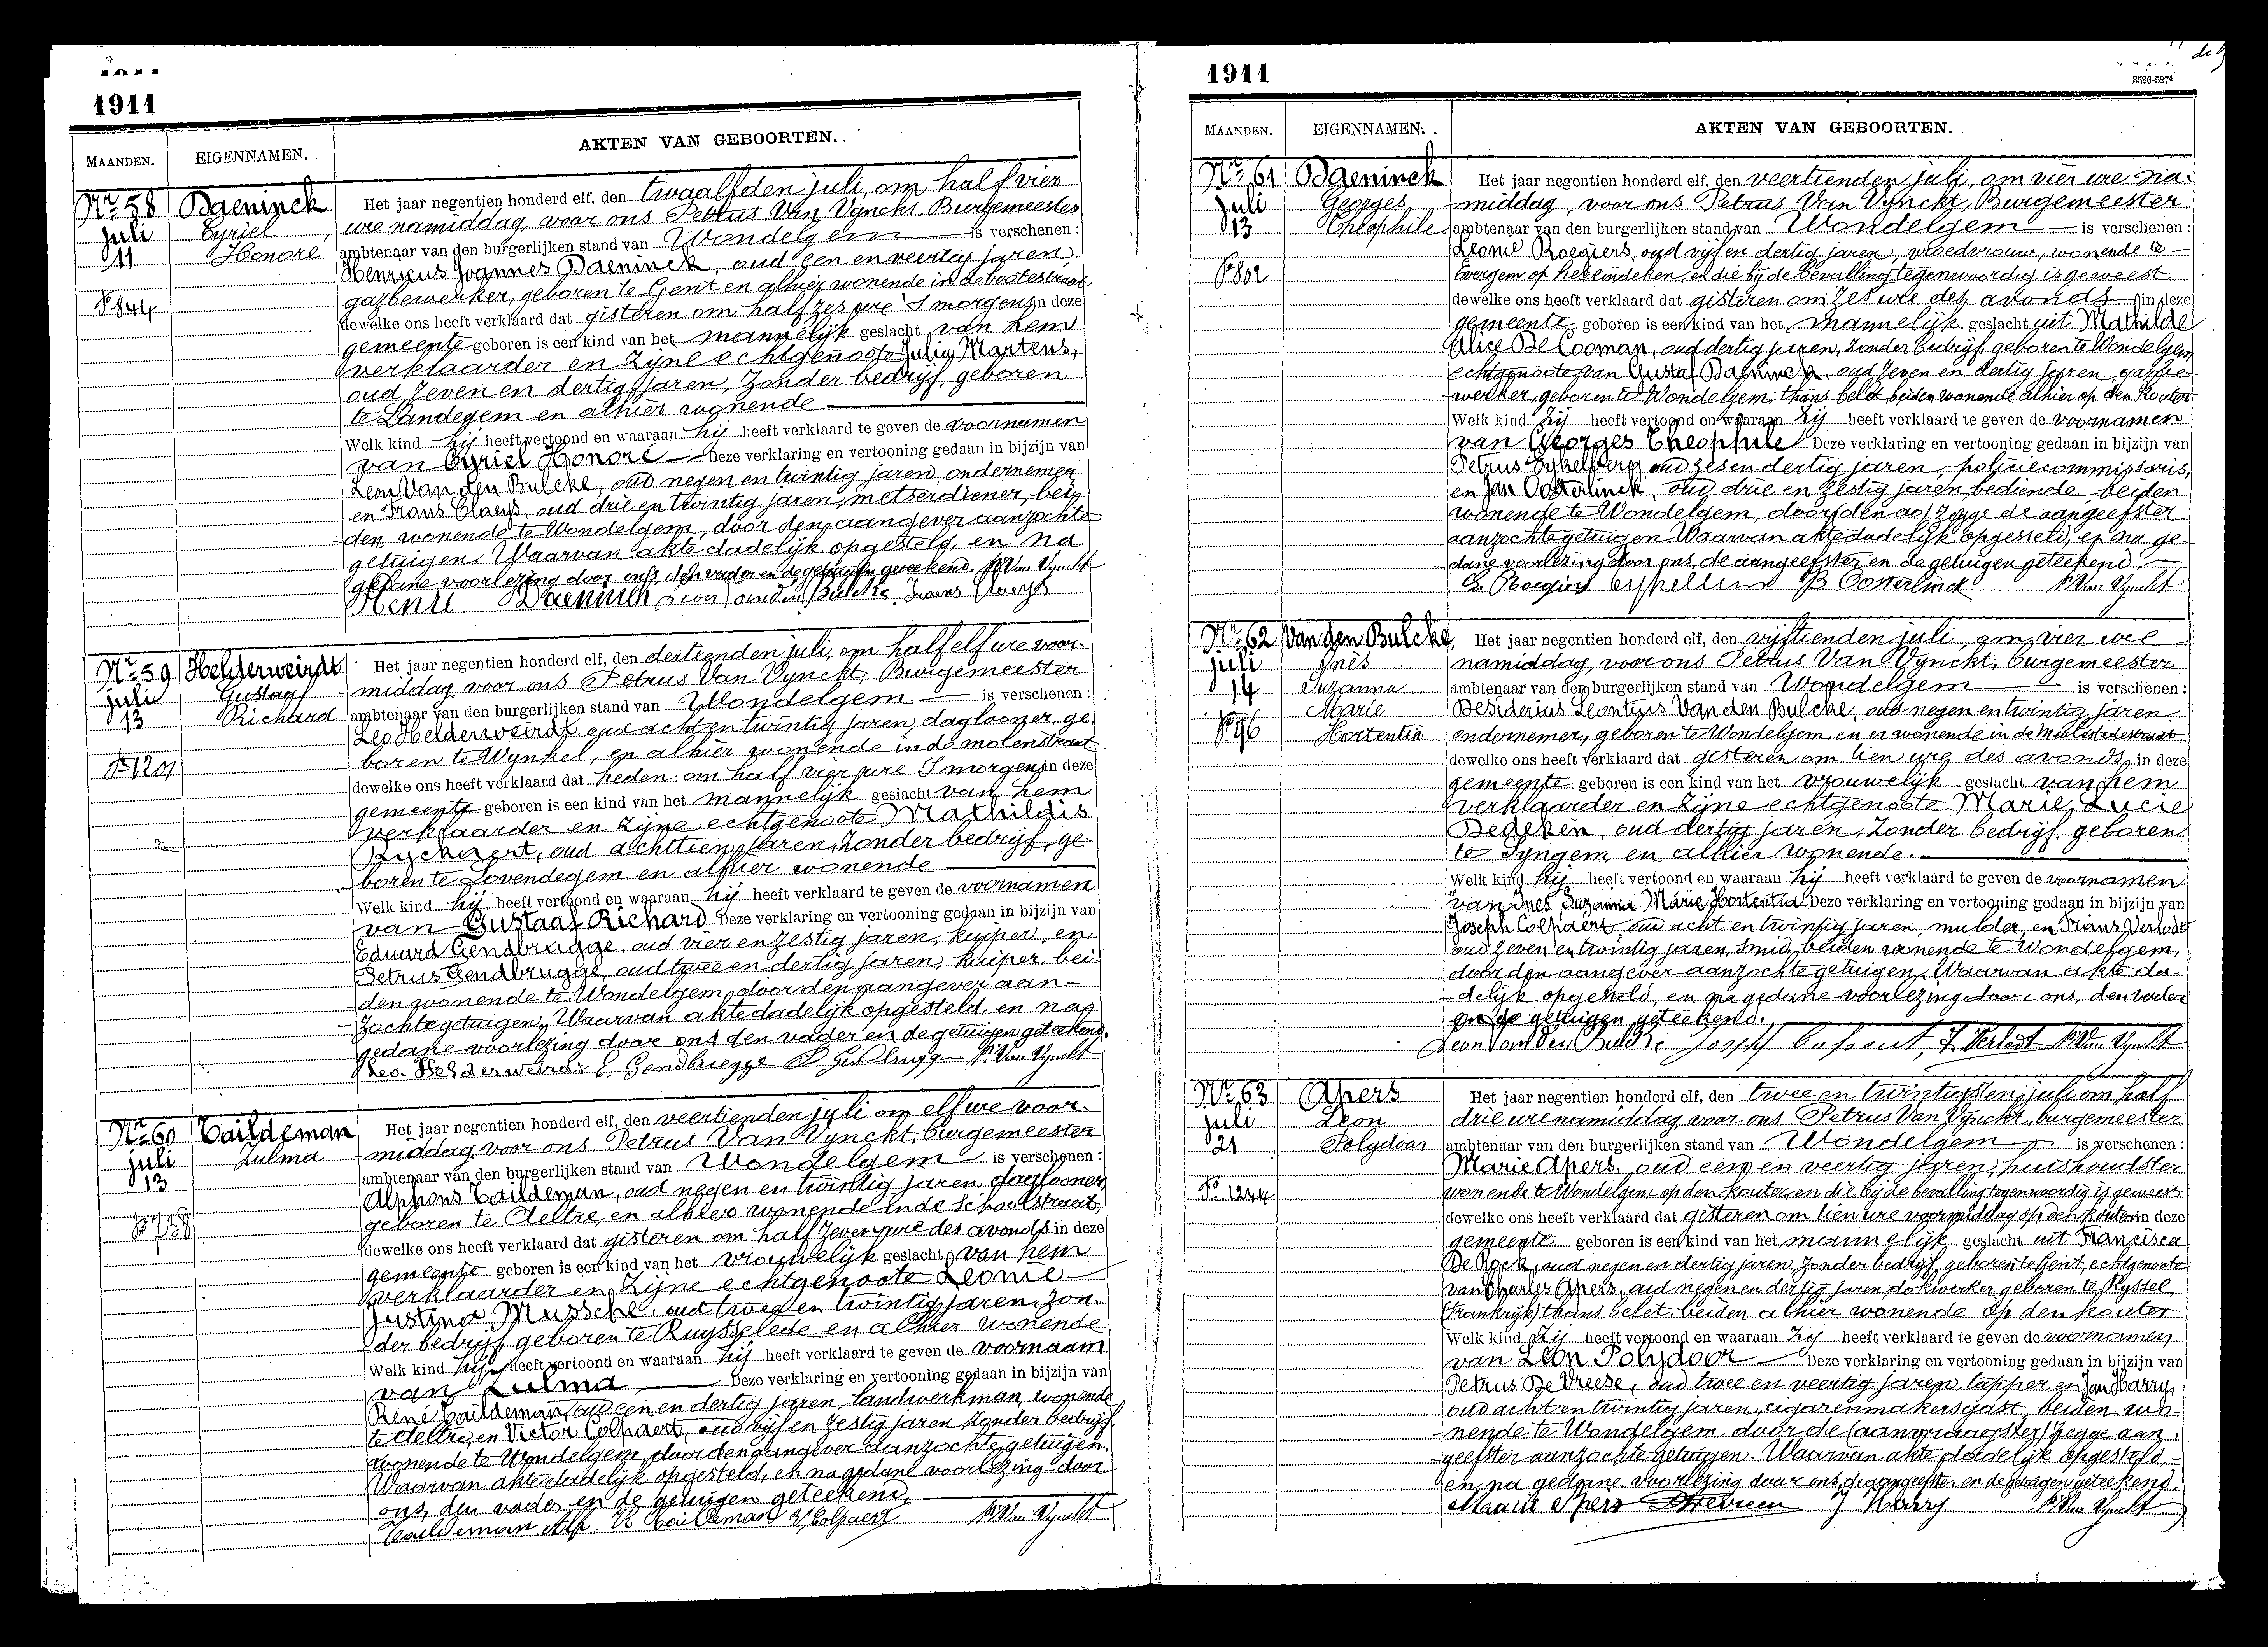 1911
MAANDEN. EIGENNAMEN. AKTEN VAN GEBOORTEN.
Nr 58
juli
11
Baeninck
Cyriel
Honoré
Het jaar negentien honderd elf, den twaalfden juli, om half vier
ure namiddag, voor ons Petrus Van Vynckt, Burgemeester
ambtenaar van den burgerlijken stand van Wondelgem is verschenen:
Henricus Joannes Baeninck, oud een en veertig jaren,
gazbewerker, geboren te Gent en alhier wonende in de
dewelke ons heeft verklaard dat gisteren om half zes ure 's morgens in deze
gemeente geboren is een kind van het mannelijk geslacht van hem
verklaarder en zijne echtgenoote Julia Martens,
oud zeven en dertig jaren, zonder bedrijf, geboren
te Landegem en alhier wonende
Welk kind hij heeft vertoond en waaraan hij heeft verklaard te geven de voornamen
van Cyriel Honoré Deze verklaring en vertooning gedaan in bijzijn van
Leon Van den Bulcke, oud negen en twintig jaren, ondernemer
en Frans Claeys, oud drie en twintig jaren, metserdiener, bei-
den wonende te Wondelgem, door den aangever aanzochte
getuigen. Waarvan akte dadelijk opgesteld, en na
gedane voorlezing door ons, den vader en de getuigen geteekend. P. Van Vynckt
Henri Baeninck Leon Van den Bulcke Frans Claeys
Nr 59
juli
13
Nr 1201
Helderweirdt
Gustaaf
Richard
Het jaar negentien honderd elf, den dertienden juli, om half elf ure voor-
middag, voor ons Petrus Van Vynckt, Burgemeester
ambtenaar van den burgerlijken stand van Wondelgem is verschenen:
Leo Helderweirdt, oud acht en twintig jaren, daglooner, ge-
boren te Wynkel, en alhier wonende in de molenstraat
dewelke ons heeft verklaard dat heden om half vier ure 's morgens in deze
gemeente geboren is een kind van het mannelijk geslacht van hem
verklaarder en zijne echtgenoote Mathildis
Ryckaert, oud achttien jaren, zonder bedrijf, ge-
boren te Lovendegem en alhier wonende
Welk kind hij heeft vertoond en waaraan hij heeft verklaard te geven de voornamen
van Gustaaf Richard Deze verklaring en vertooning gedaan in bijzijn van
Eduard Gendbrugge, oud vier en zestig jaren, kuiper, en
Petrus Gendbrugge, oud twee en dertig jaren, kuiper, bei-
den wonende te Wondelgem, door den aangever aan-
zochte getuigen. Waarvan akte dadelijk opgesteld, en na
gedane voorlezing door ons den vader en de getuigen geteekend.
Leo Helderweirdt E. Gendbrugge P. Gendbrugge P. Van Vynckt
Nr 60
juli
13
Caildeman
Zulma
Het jaar negentien honderd elf, den veertienden juli om elf ure voor-
middag, voor ons Petrus Van Vynckt, burgemeester
ambtenaar van den burgerlijken stand van Wondelgem is verschenen:
Alphons Caildeman, oud negen en twintig jaren, daglooner,
geboren te Aeltre, en alhier wonende in de Schoolstraat,
dewelke ons heeft verklaard dat gisteren om half zeven ure des avonds in deze
gemeente geboren is een kind van het vrouwelijk geslacht van hem
verklaarder en zijne echtgenoote Leonie
Justina Mussche, oud twee en twintig jaren, zon-
der bedrijf, geboren te Ruysselede en alhier wonende
Welk kind hij heeft vertoond en waaraan hij heeft verklaard te geven de voornaam
van Zulma Deze verklaring en vertooning gedaan in bijzijn van
René Caildeman, oud een en dertig jaren, landwerkman, wonende
te Aeltre, en Victor Colpaert, oud vijf en zestig jaren zonder bedrijf,
wonende te Wondelgem, door den aangever aanzochte getuigen.
Waarvan akte dadelijk opgesteld, en na gedane voorlezing door
ons, den vader en de getuigen geteekend.
Caildeman Alf. R Caildeman V. Colpaert P. Van Vynckt
1911
3586-5274
MAANDEN. EIGENNAMEN. AKTEN VAN GEBOORTEN.
Nr 61
juli
13
Nr 802
Baeninck
Georges
Theophile
Het jaar negentien honderd elf, den veertienden juli, om vier ure na-
middag, voor ons Petrus Van Vynckt, Burgemeester
ambtenaar van den burgerlijken stand van Wondelgem is verschenen:
Leonie Roegiers, oud vijf en dertig jaren, vroedvrouw, wonende te
Evergem op het eindeken, en die bij de bevalling tegenwoordig is geweest
dewelke ons heeft verklaard dat gisteren om zes ure des avonds in deze
gemeente geboren is een kind van het mannelijk geslacht uit Mathilde
Alice De Cooman, oud dertig jaren, zonder bedrijf, geboren te Wondelgem
echtgenoote van Gustaf Baeninck, oud zeven en dertig jaren, gazbe-
werker, geboren te Wondelgem, thans belet, beiden wonende alhier op den Kouter
Welk kind zij heeft vertoond en waaraan zij heeft verklaard te geven de voornamen
van Georges Theophile Deze verklaring en vertooning gedaan in bijzijn van
Petrus oud zes en dertig jaren, policiecommissaris,
en Jan Oosterlinck, oud drie en zestig jaren, bediende beiden
wonende te Wondelgem, door den aa) zegge de aangeefster
aanzochte getuigen. Waarvan akte dadelijk opgesteld, en na ge-
dane voorlezing door ons, de aangeefster en de getuigen geteekend.
L. Roegiers Oosterlinck P. Van Vynckt
Nr 62
juli
14
Nr 96
Van den Bulcke,
Ynès
Suzanna
Marie
Hortentia
Het jaar negentien honderd elf, den vijftienden juli, om vier ure
namiddag, voor ons Petrus Van Vynckt, burgemeester
ambtenaar van den burgerlijken stand van Wondelgem is verschenen:
Desiderius Leontius Van den Bulcke, oud negen en twintig jaren
ondernemer, geboren te Wondelgem, en er wonende in de
dewelke ons heeft verklaard dat gisteren om tien ure des avonds in deze
gemeente geboren is een kind van het vrouwelijk geslacht van hem
verklaarder en zijne echtgenoote Marie Lucie
Bedeken, oud dertig jaren, zonder bedrijf, geboren
te Syngem, en alhier wonende.
Welk kind hij heeft vertoond en waaraan hij heeft verklaard te geven de voornamen
van Ines Suzanna Marie Hortentia Deze verklaring en vertooning gedaan in bijzijn van
Joseph Colpaert, oud acht en twintig jaren, mulder, en Frans Verlodt
oud zeven en twintig jaren, smid, beiden wonende te Wondelgem,
door den aangever aanzochte getuigen. Waarvan akte da-
delijk opgesteld, en na gedane voorlezing door ons, den vader
en de getuigen geteekend.
Leon Van den Bulcke Joseph Colpaert, F. Verlodt P. Van Vynckt
Nr 63
juli
21
Nr 1244
Apers
Leon
Polydoor
Het jaar negentien honderd elf, den twee en twintigsten juli om half
drie ure namiddag, voor ons Petrus Van Vynckt, burgemeester
ambtenaar van den burgerlijken stand van Wondelgem is verschenen:
Marie Apers, oud een en veertig jaren, huishoudster
wonende te Wondelgem op den kouter, en die bij de bevalling tegenwoordig is geweest
dewelke ons heeft verklaard dat gisteren om tien ure voormiddag op den kouter in deze
gemeente geboren is een kind van het mannelijk geslacht uit Francisca
De Rock, oud negen en dertig jaren, zonder bedrijf, geboren te Gent, echtgenoote
van Charles Apers, oud negen en dertig jaren, dokwerker, geboren te Ryssel
(Frankrijk) thans belet, beiden alhier wonende op den kouter
Welk kind zij heeft vertoond en waaraan zij heeft verklaard te geven de voornamen
van Leon Polydoor Deze verklaring en vertooning gedaan in bijzijn van
Petrus De Vreese, oud twee en veertig jaren, tapper en Jan Harry,
oud acht en twintig jaren, cigarenmakersgast, beiden wo-
nende te Wondelgem, door de zegge aan-
geefster aanzochte getuigen. Waarvan akte dadelijk opgesteld,
en na gedane voorlezing door ons, de aangeefster en de getuigen geteekend.
Marie Apers J Harry P. Van Vynckt